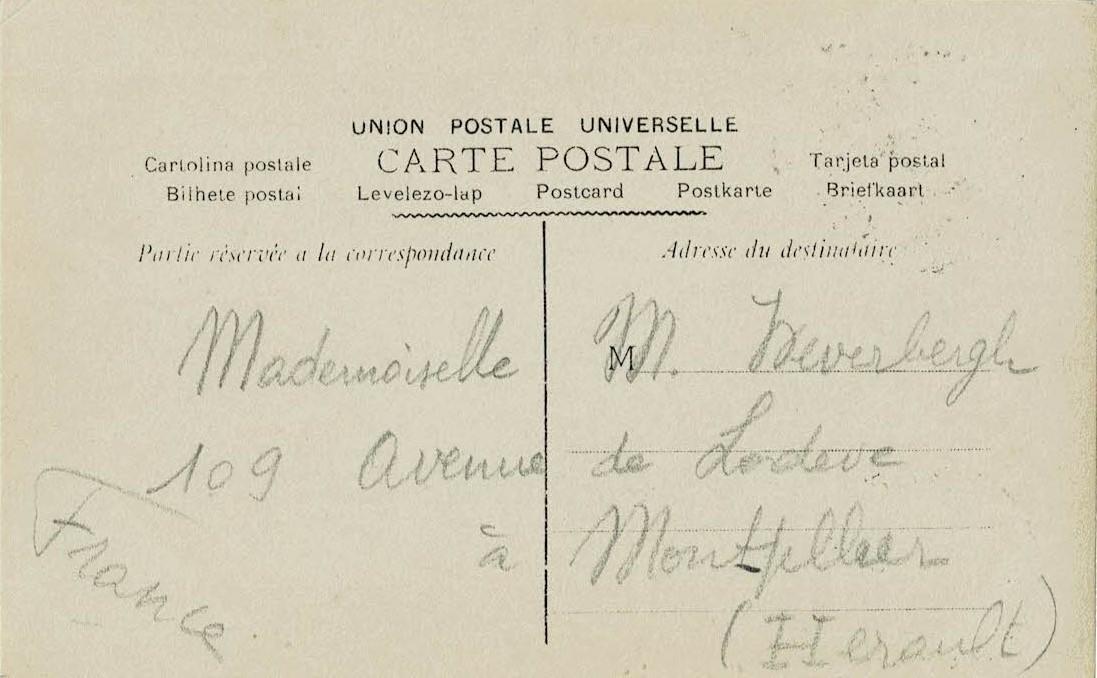 UNION POSTALE UNIVERSELLE
CARTE POSTALE
Cartolina postale Tarjeta postal
Bilhete postal Levelezo-lap Postcard Postkarte Briefkaart
Partie réservée a la correspondance Adresse du destinataire
M
Mademoiselle M. Weverbergh
109 Avenue de Lodeve
à Montpellier
(Herault)
France